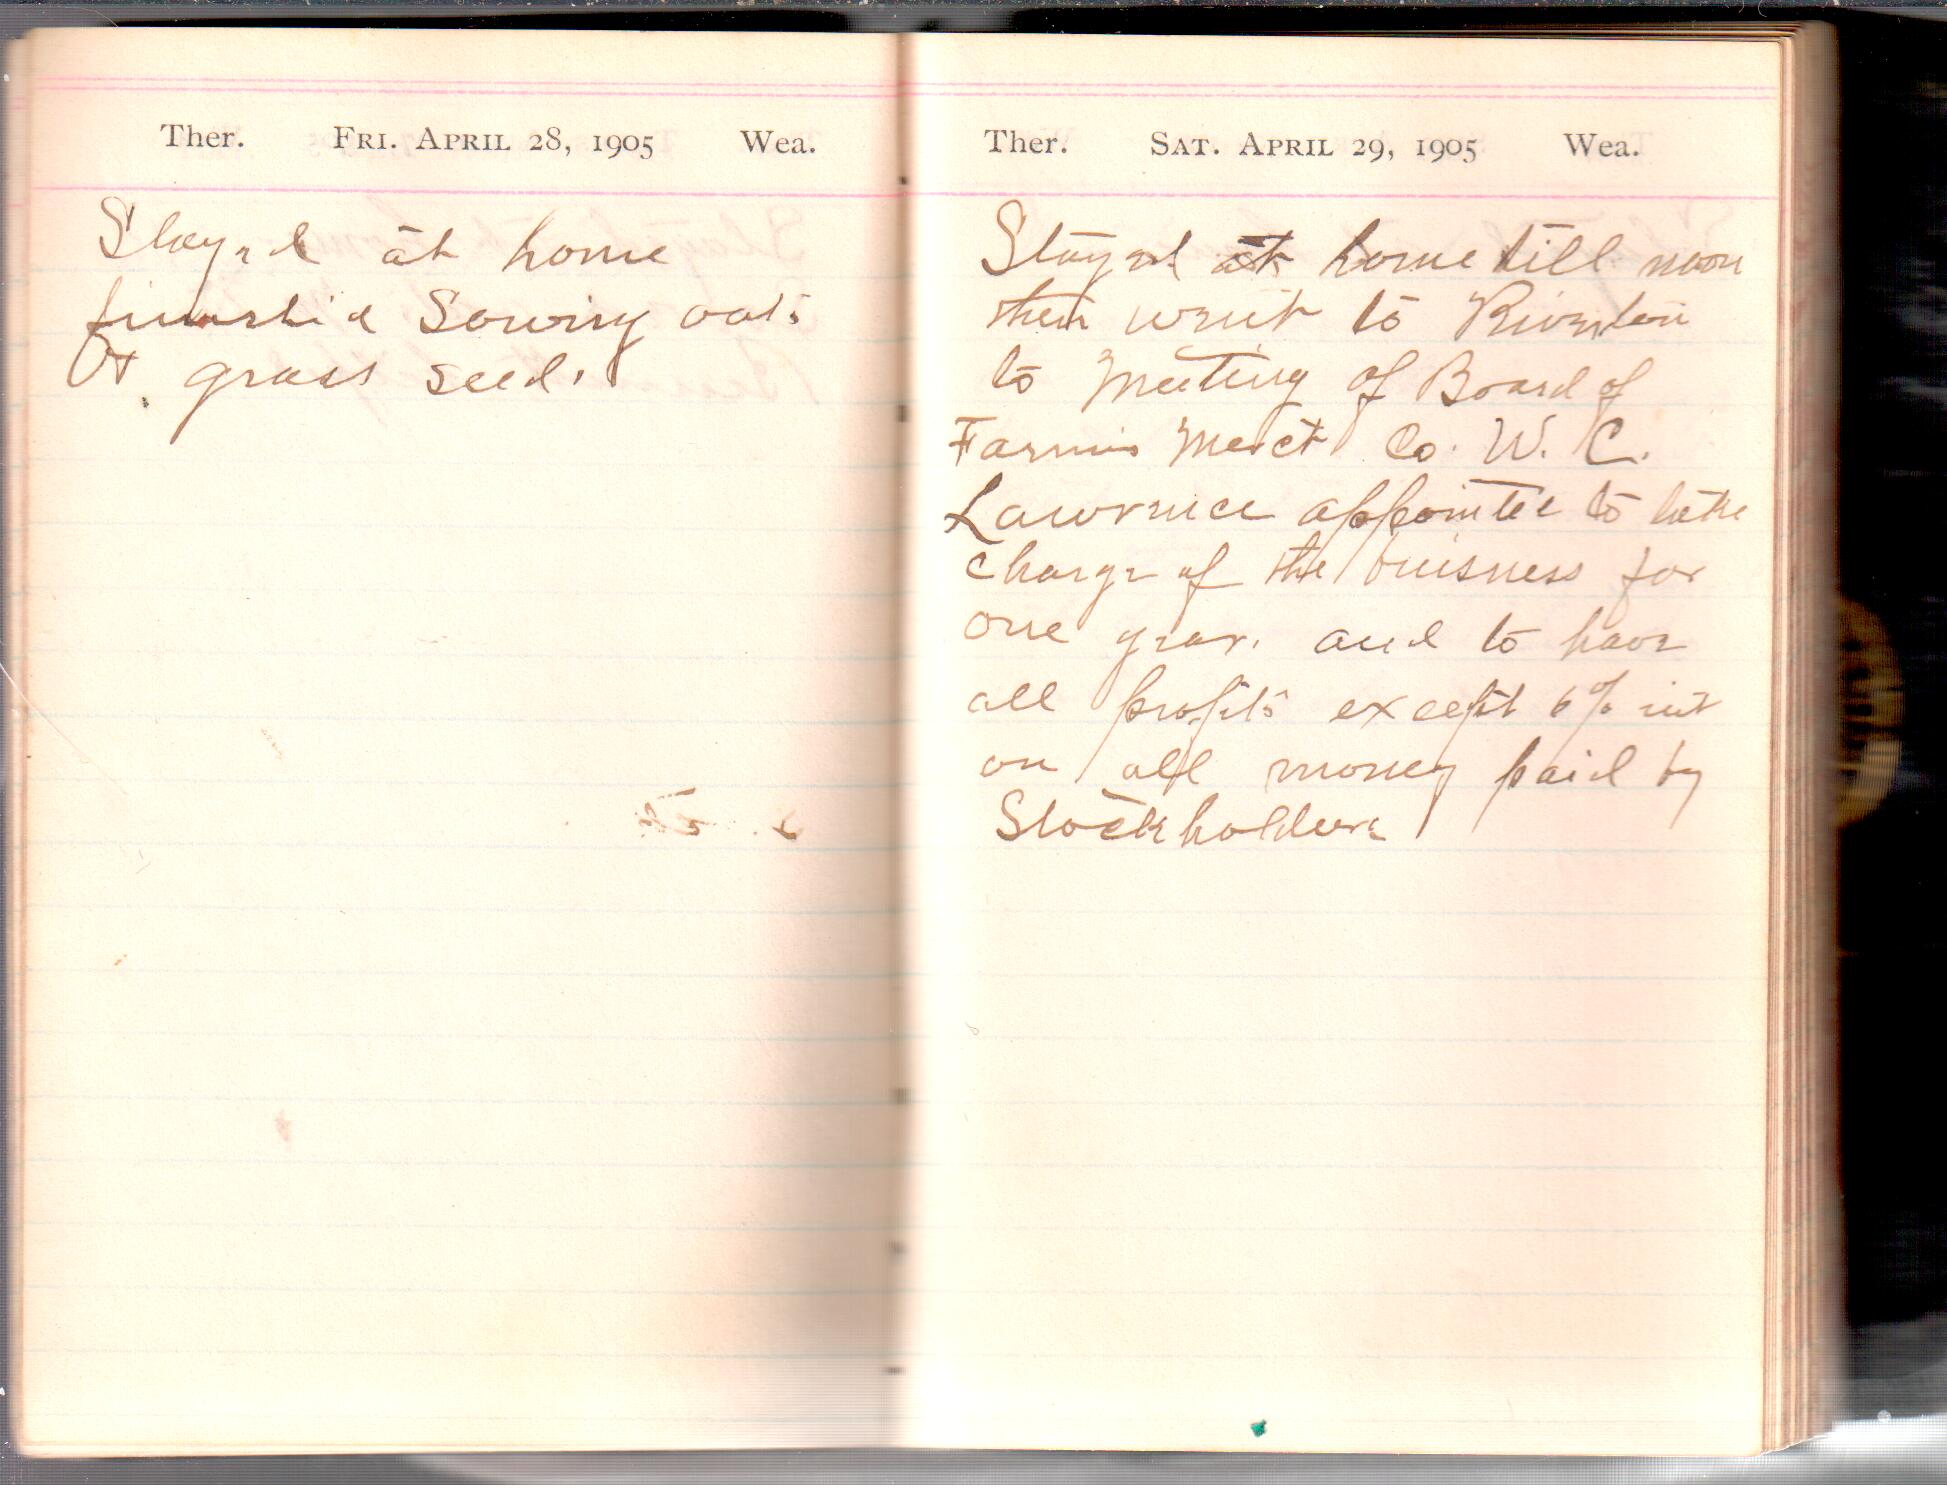 Ther. Fri. April 28, 1905 Wea.
Stayed at home
finishd Sowing oats
& grass seed.
Ther. Sat. April 29, 1905 Wea.
Stayed at home till noon
then went to Riverton
to Meeting of Board of
Farmers Merct Co. W. C.
Lawrence appointed to take
charge of the buisness for
one year. and to have
all profits except 6% int
on all money paid by
Stockholders